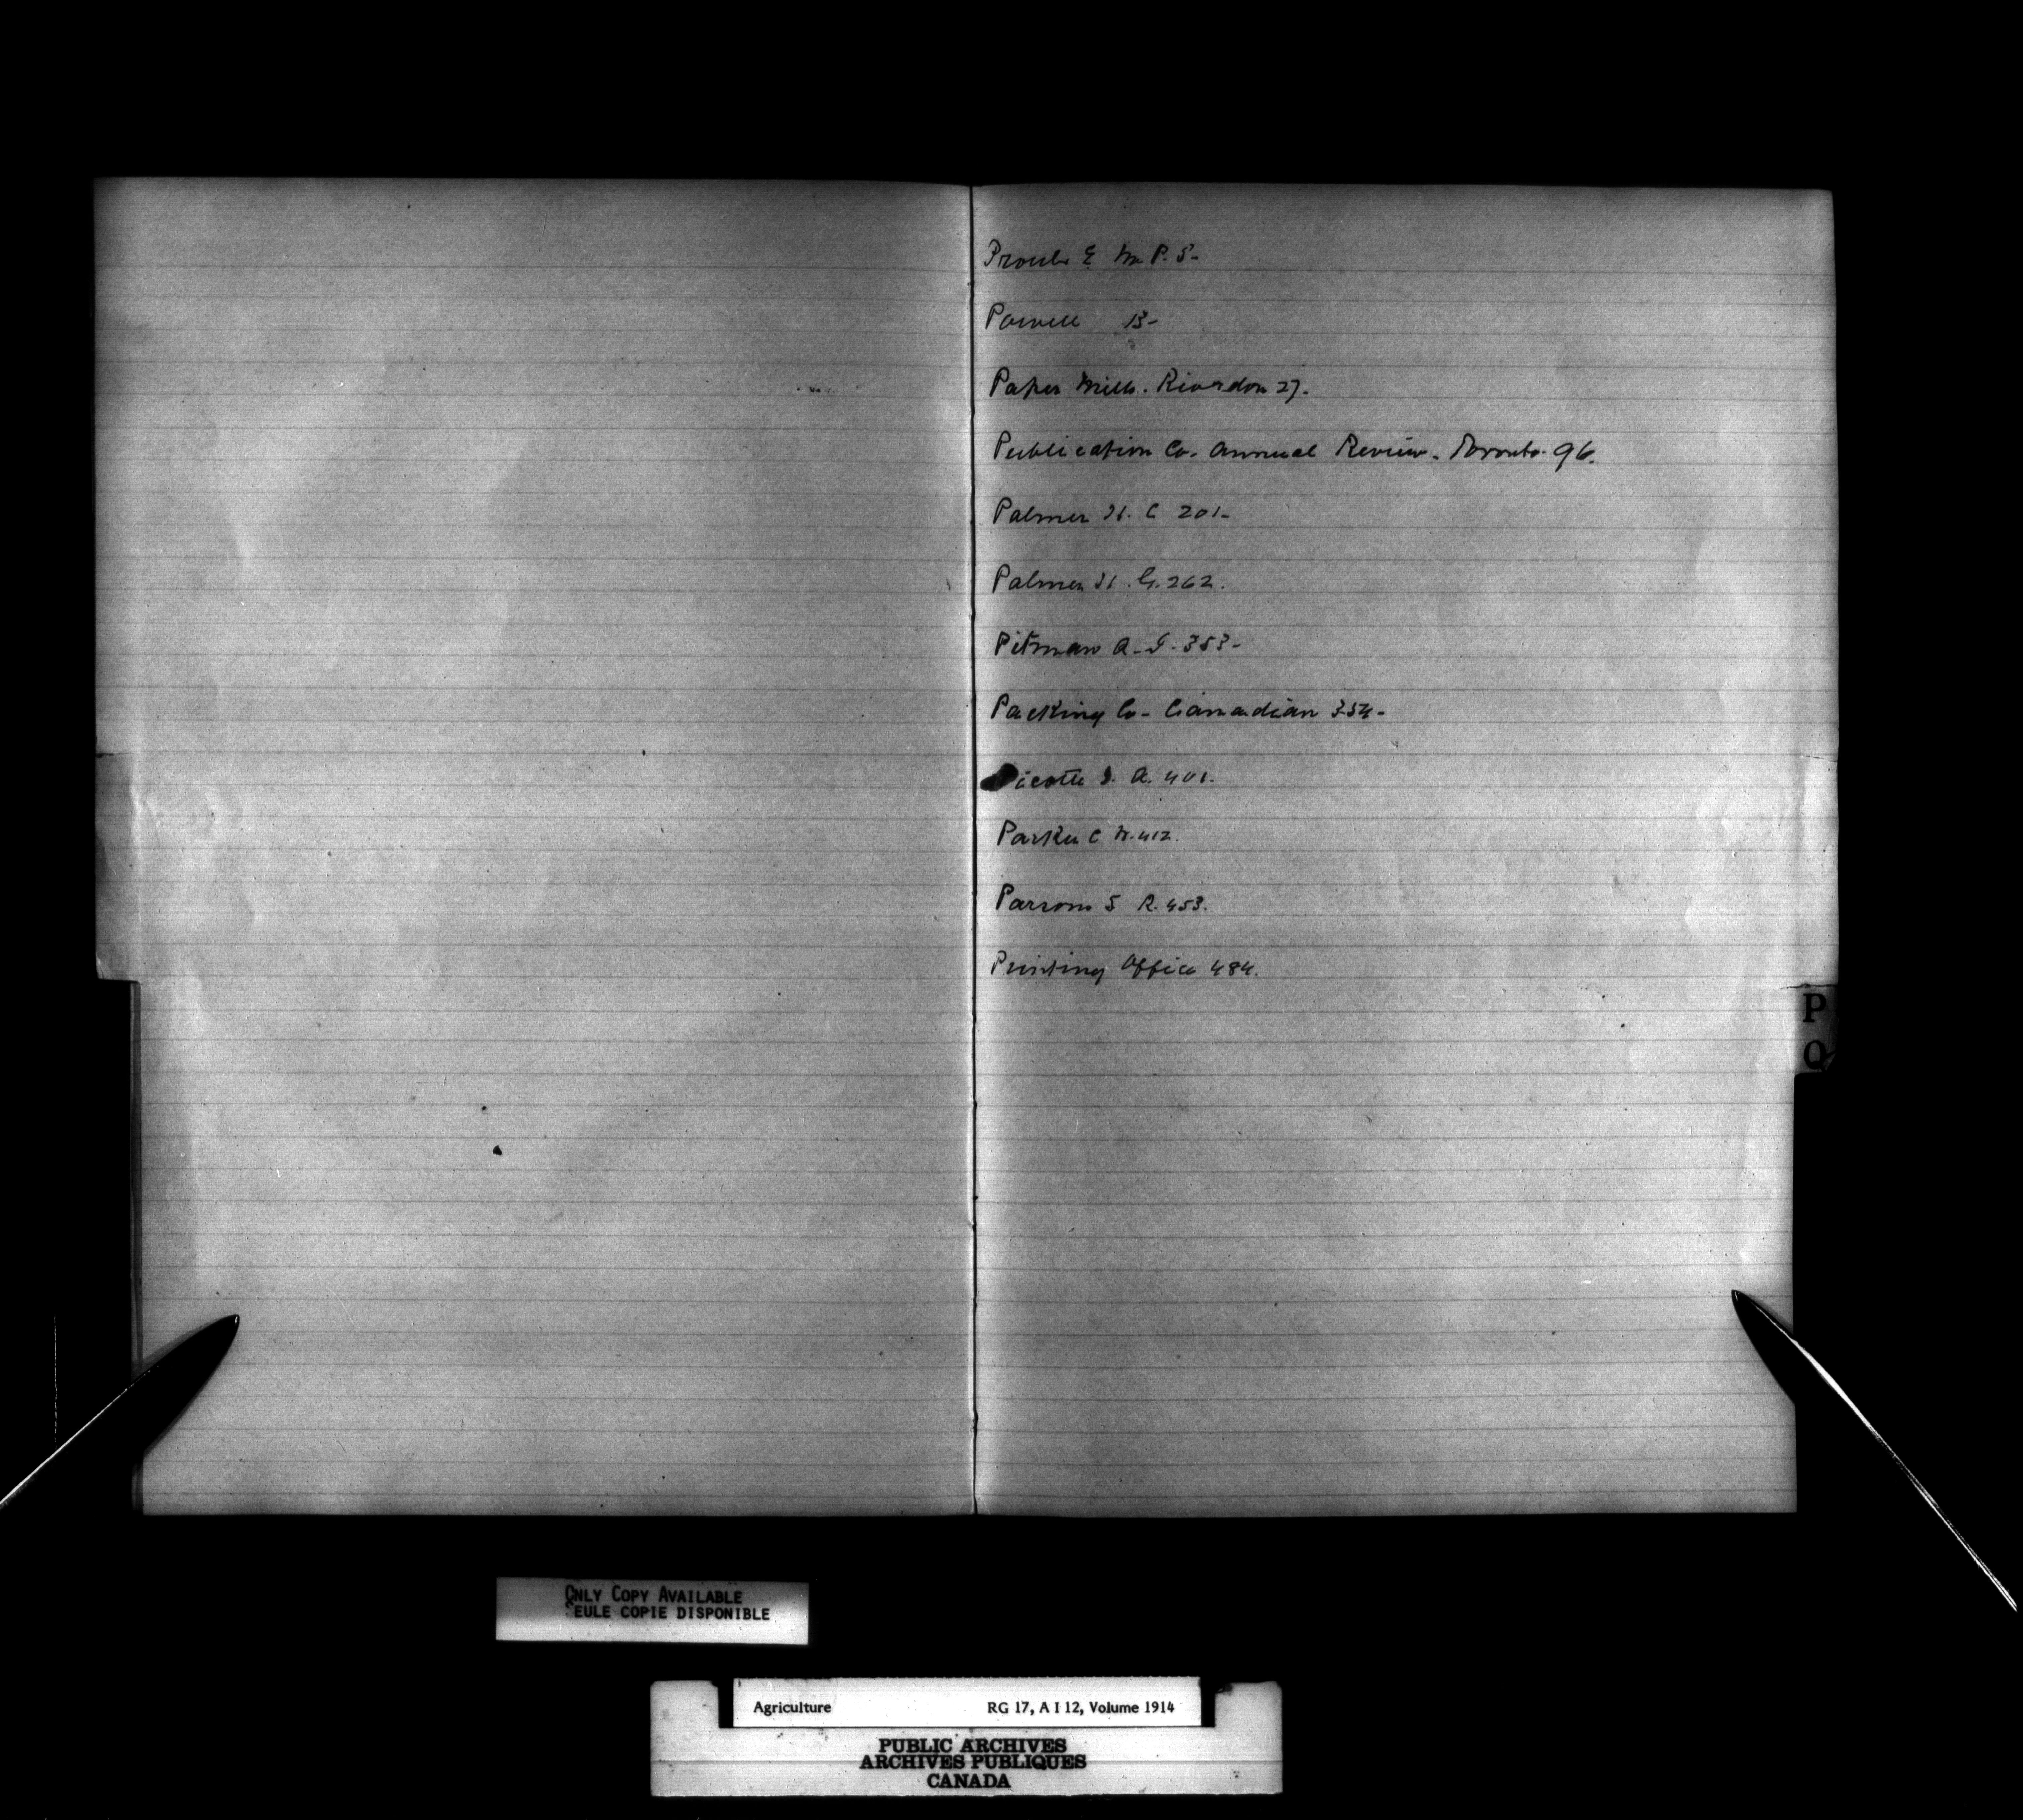 Proulx E M.P. 5-
Powell 13-
Paper Mills. Riordon 27.
Publication Co. Annual Review. Toronto. 96.
Palmer H. C 201-
Palmer H. G. 262.
Pitman A. J. 353-
Packing Co- Canadian 354-
Picotte J. A. 401.
Parker C W. 412.
Parsons S R. 453.
Printing Office 484.
P
Q
ONLY COPY AVAILABLE
SEULE COPIE DISPONIBLE
Agriculture RG 17, A I 12, Volume 1914
PUBLIC ARCHIVES
ARCHIVES PUBLIQUES
CANADA